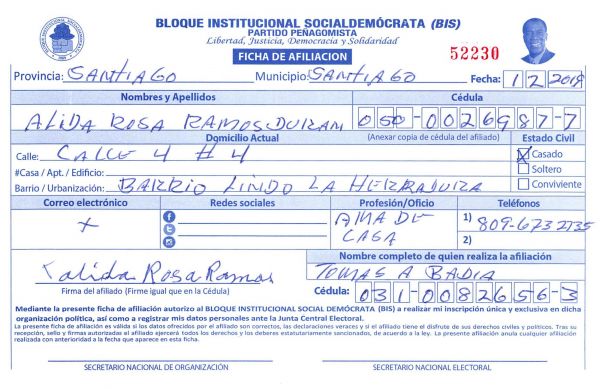 BLOQUE INSTITUCIONAL SOCIALDEMÓCRATA (BIS)
PARTIDO PEÑAGOMISTA
Libertad, Justicia, Democracia y Solidaridad
FICHA DE AFILIACION
52230
Provincia: SANTIAGO Municipio: SANTIAGO Fecha: 1/2 2018
Nombres y Apellidos Cédula
ALIDA ROSA RAMOS DURAN 050-0026987-7
Domicilio Actual (Anexar copia de cédula del afiliado) Estado Civil
Calle: CALLE 4 # 4 X Casado
#Casa / Apt. / Edificio: Soltero
Barrio / Urbanización: BARRIO LINDO LA HERRADURA Conviviente
Correo electrónico Redes sociales Profesión/Oficio Teléfonos
X AMA DE CASA 1) 809-673 2735
2)
Nombre completo de quien realiza la afiliación
Xalida Rosa Ramos TOMAS A BADIA
Firma del afiliado (Firme igual que en la Cédula) Cédula: 031-0082656-3
Mediante la presente ficha de afiliación autorizo al BLOQUE INSTITUCIONAL SOCIAL DEMÓCRATA (BIS) a realizar mi inscripción única y exclusiva en dicha
organización política, así como a registrar mis datos personales ante la Junta Central Electoral.
La presente ficha de afiliación es válida si los datos ofrecidos por el afiliado son correctos, las declaraciones veraces y si el afiliado tiene el disfrute de sus derechos civiles y políticos. Tras su
recepción, sello y firmas autorizadas el afiliado ejercerá todos los derechos y los deberes estatutariamente sancionados, de acuerdo a la ley. La presente afiliación anula cualquier afiliación
realizada con anterioridad a la fecha que aparece en esta ficha.
SECRETARIO NACIONAL DE ORGANIZACIÓN SECRETARIO NACIONAL ELECTORAL